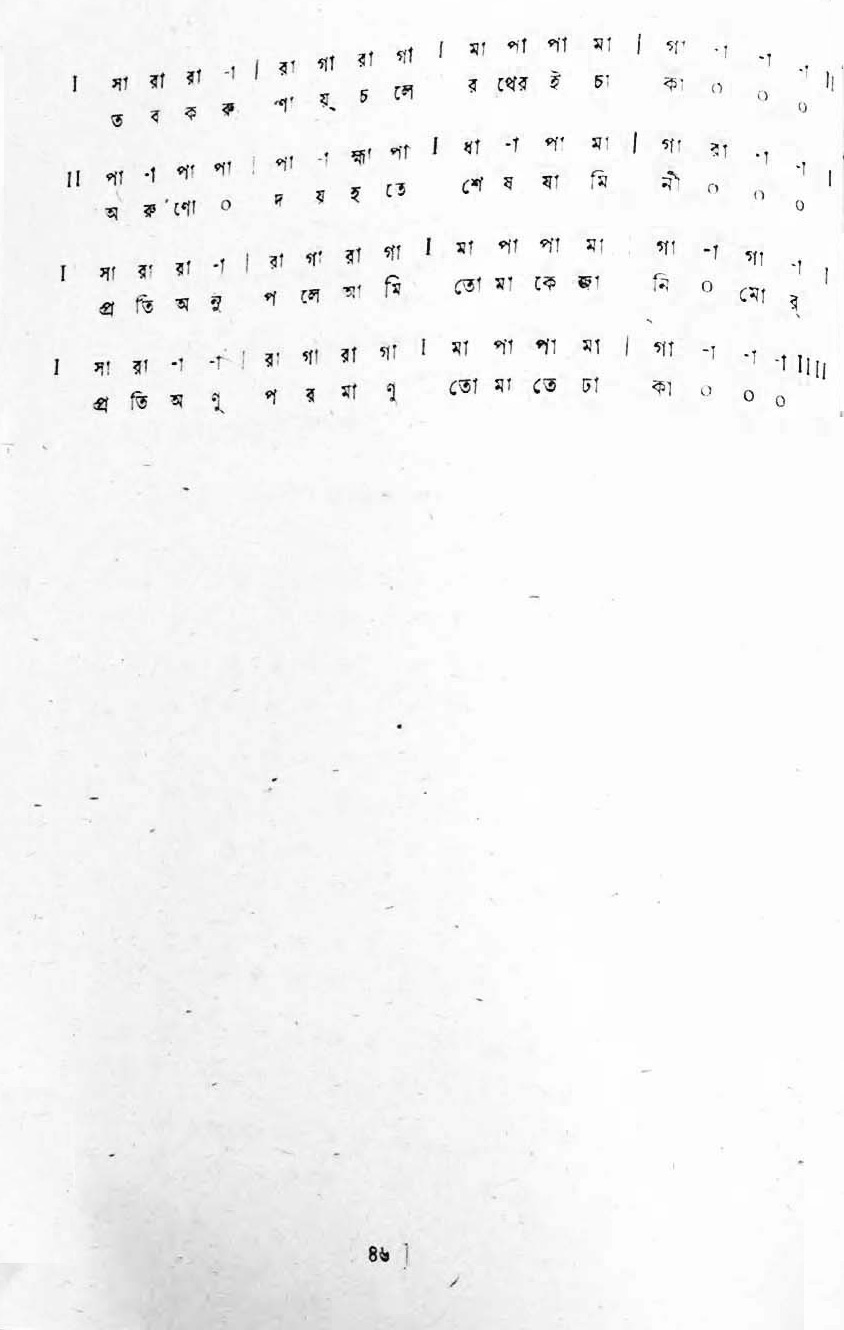 I সা রা রা -া | রা গা রা গা I মা পা পা মা | গা -া -া -া II
ত ব ক রু ণা য়্ চ লে র থের ই চা কা ০ ০ ০
II পা -া পা পা | পা -া হ্মা পা I ধা -া পা মা | গা রা -া -া I
অ রু ণো ০ দ য় হ তে শে ষ যা মি নী ০ ০ ০
I সা রা রা -া | রা গা রা গা I মা পা পা মা গা -া গা -া I
প্র তি অ নু প লে আ মি তো মা কে জা নি ০ মো র্
I সা রা -া -া | রা গা রা গা I মা পা পা মা | গা -া -া -া IIII
প্র তি অ ণু প র মা ণু তো মা তে ঢা কা ০ ০ ০
৪৬ ]